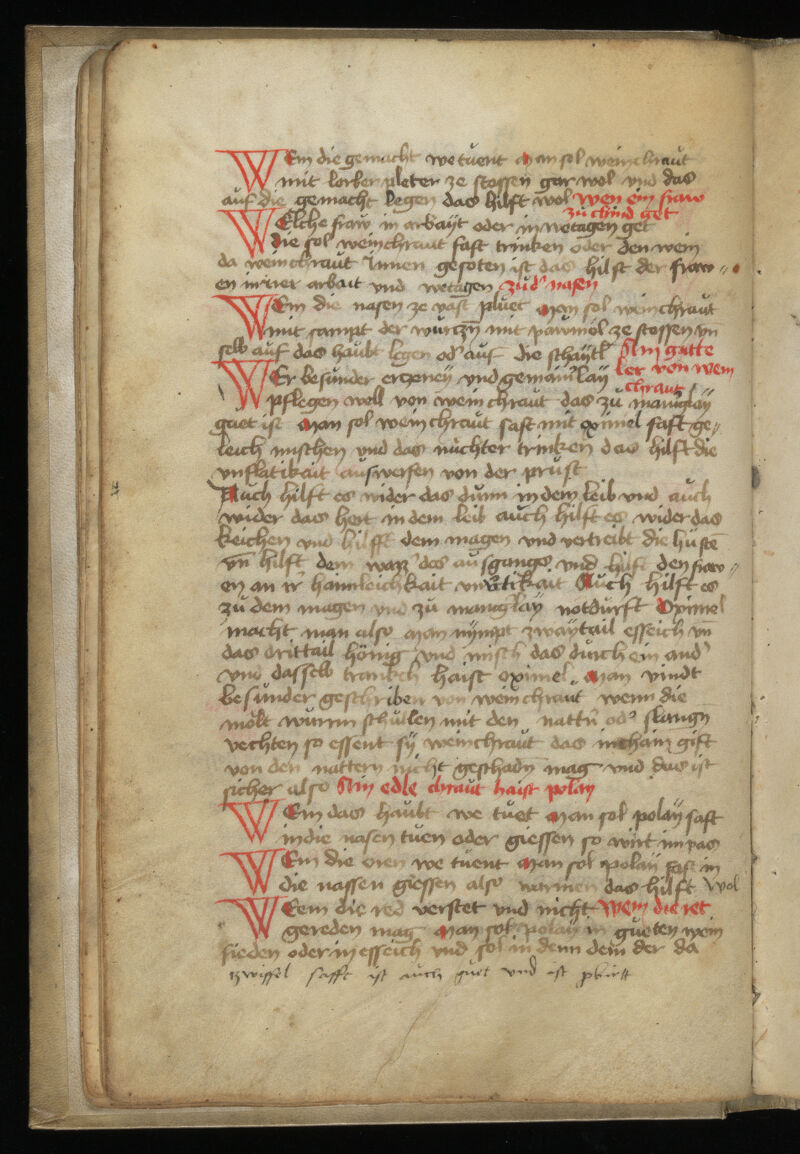 WEm die gemacht we tuent Man sol weinchraut
mit lorber pleter ze stossen gar wol und das
auf die gemacht legen das hilft wol Wen ein fraw
zu chind get
WElche fraw in arbayt oder in wetagen get
die sol weinchraut saft trinken oder den wein
da weinchraut Innen gesoten ist das hilft der fraw〃
en in irer arbait und wetagen zu dˀ nasen
WEm die nasen ze vast pluet Man sol weinchraut
mit sampt der wurczn̄ mit pawmöl ze stossen vn̄
selb auf das haubt legen odˀ auf die schaytl Ain gutte
ler von wein
WEr besunder erczeney und gemainˀlay
chraut
pflegen well von weinchraut das zu manigˀlay
guet ist Man sol weinchraut saft mit oximel saft ge〃
leich mischen und das nüchter trinken das hilft die
unflatikait auswerfen von der prust
Auch hilft es wider das dunn in dem leib und auch
wider das hert in dem leib auch hilft es wider das
keichen und hilfft dem magen und vertreibt die hustē
vn̄ hilft dem wazzˀ das ausgangs und hilft den fraw〃
en an irˀ haimleichkait Auch hilft es
zu dem magen und zu manigˀlay notdurft Oximel
macht man also Man nympt zwaytail esseich vn̄
das drittail hönig und misch das durch ein andˀ
und dasselb tranckh haist oximel. Man vindt
besunder geschriben von weinchraut wenn die
wurm schullen mit den nattˀn odˀ slangn
vechten so essent sy weinchraut das in chain gift
von den nattern nicht geschadn mag und das ist
sicher also Ain edle chraut haist polay
WEm das haubt we tuet Man sol polay saft
in die nasen tuen oder giessen so wirt im pas
WEm die oren we tuent Man sol polay saft in
die nassen giessen also warmen das hilft wol
WEem die red verstet und nicht Wem die ret
gereden mag Man sol polay in gueten wein
sieden oder in esseich und sol in denn dem der da
zwiffel safft ist auch guet und ist